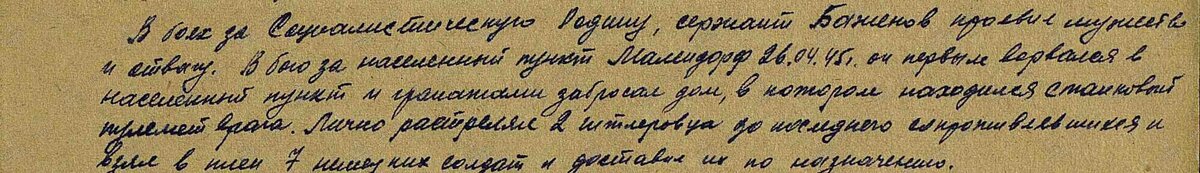 В боях за Социалистическую Родину, сержант Баженов проявил мужество
и отвагу. В бою за населенный пункт Малендорф 26.04.45г. он первым ворвался в
населенный пункт и гранатами забросал дом, в котором находился станковый
пулемет врага. Лично растрелял 2 гитлеровца до последнего сопротивлявшихся и
взял в плен 7 немецких солдат и доставил их по назначению.